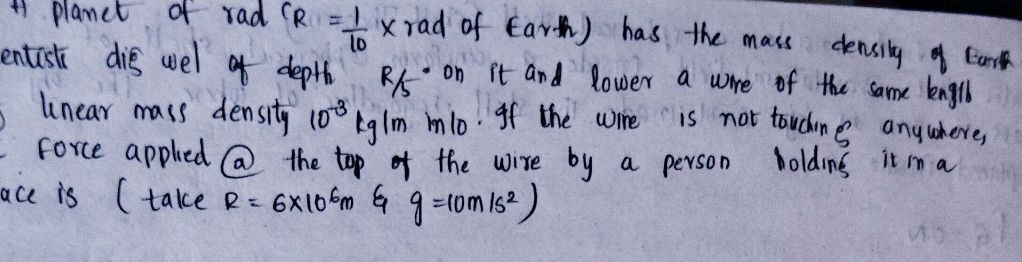 A planet of rad (R = 1/10 x rad of Earth) has the mass density of Earth
entists dig wel of depth R/5 on it and lower a wire of the same length
linear mass density 10⁻³ kg/m into. If the wire is not touching anywhere,
force applied @ the top of the wire by a person holding it in a
ace is ( take R = 6x10⁶m & g =10m/s² )